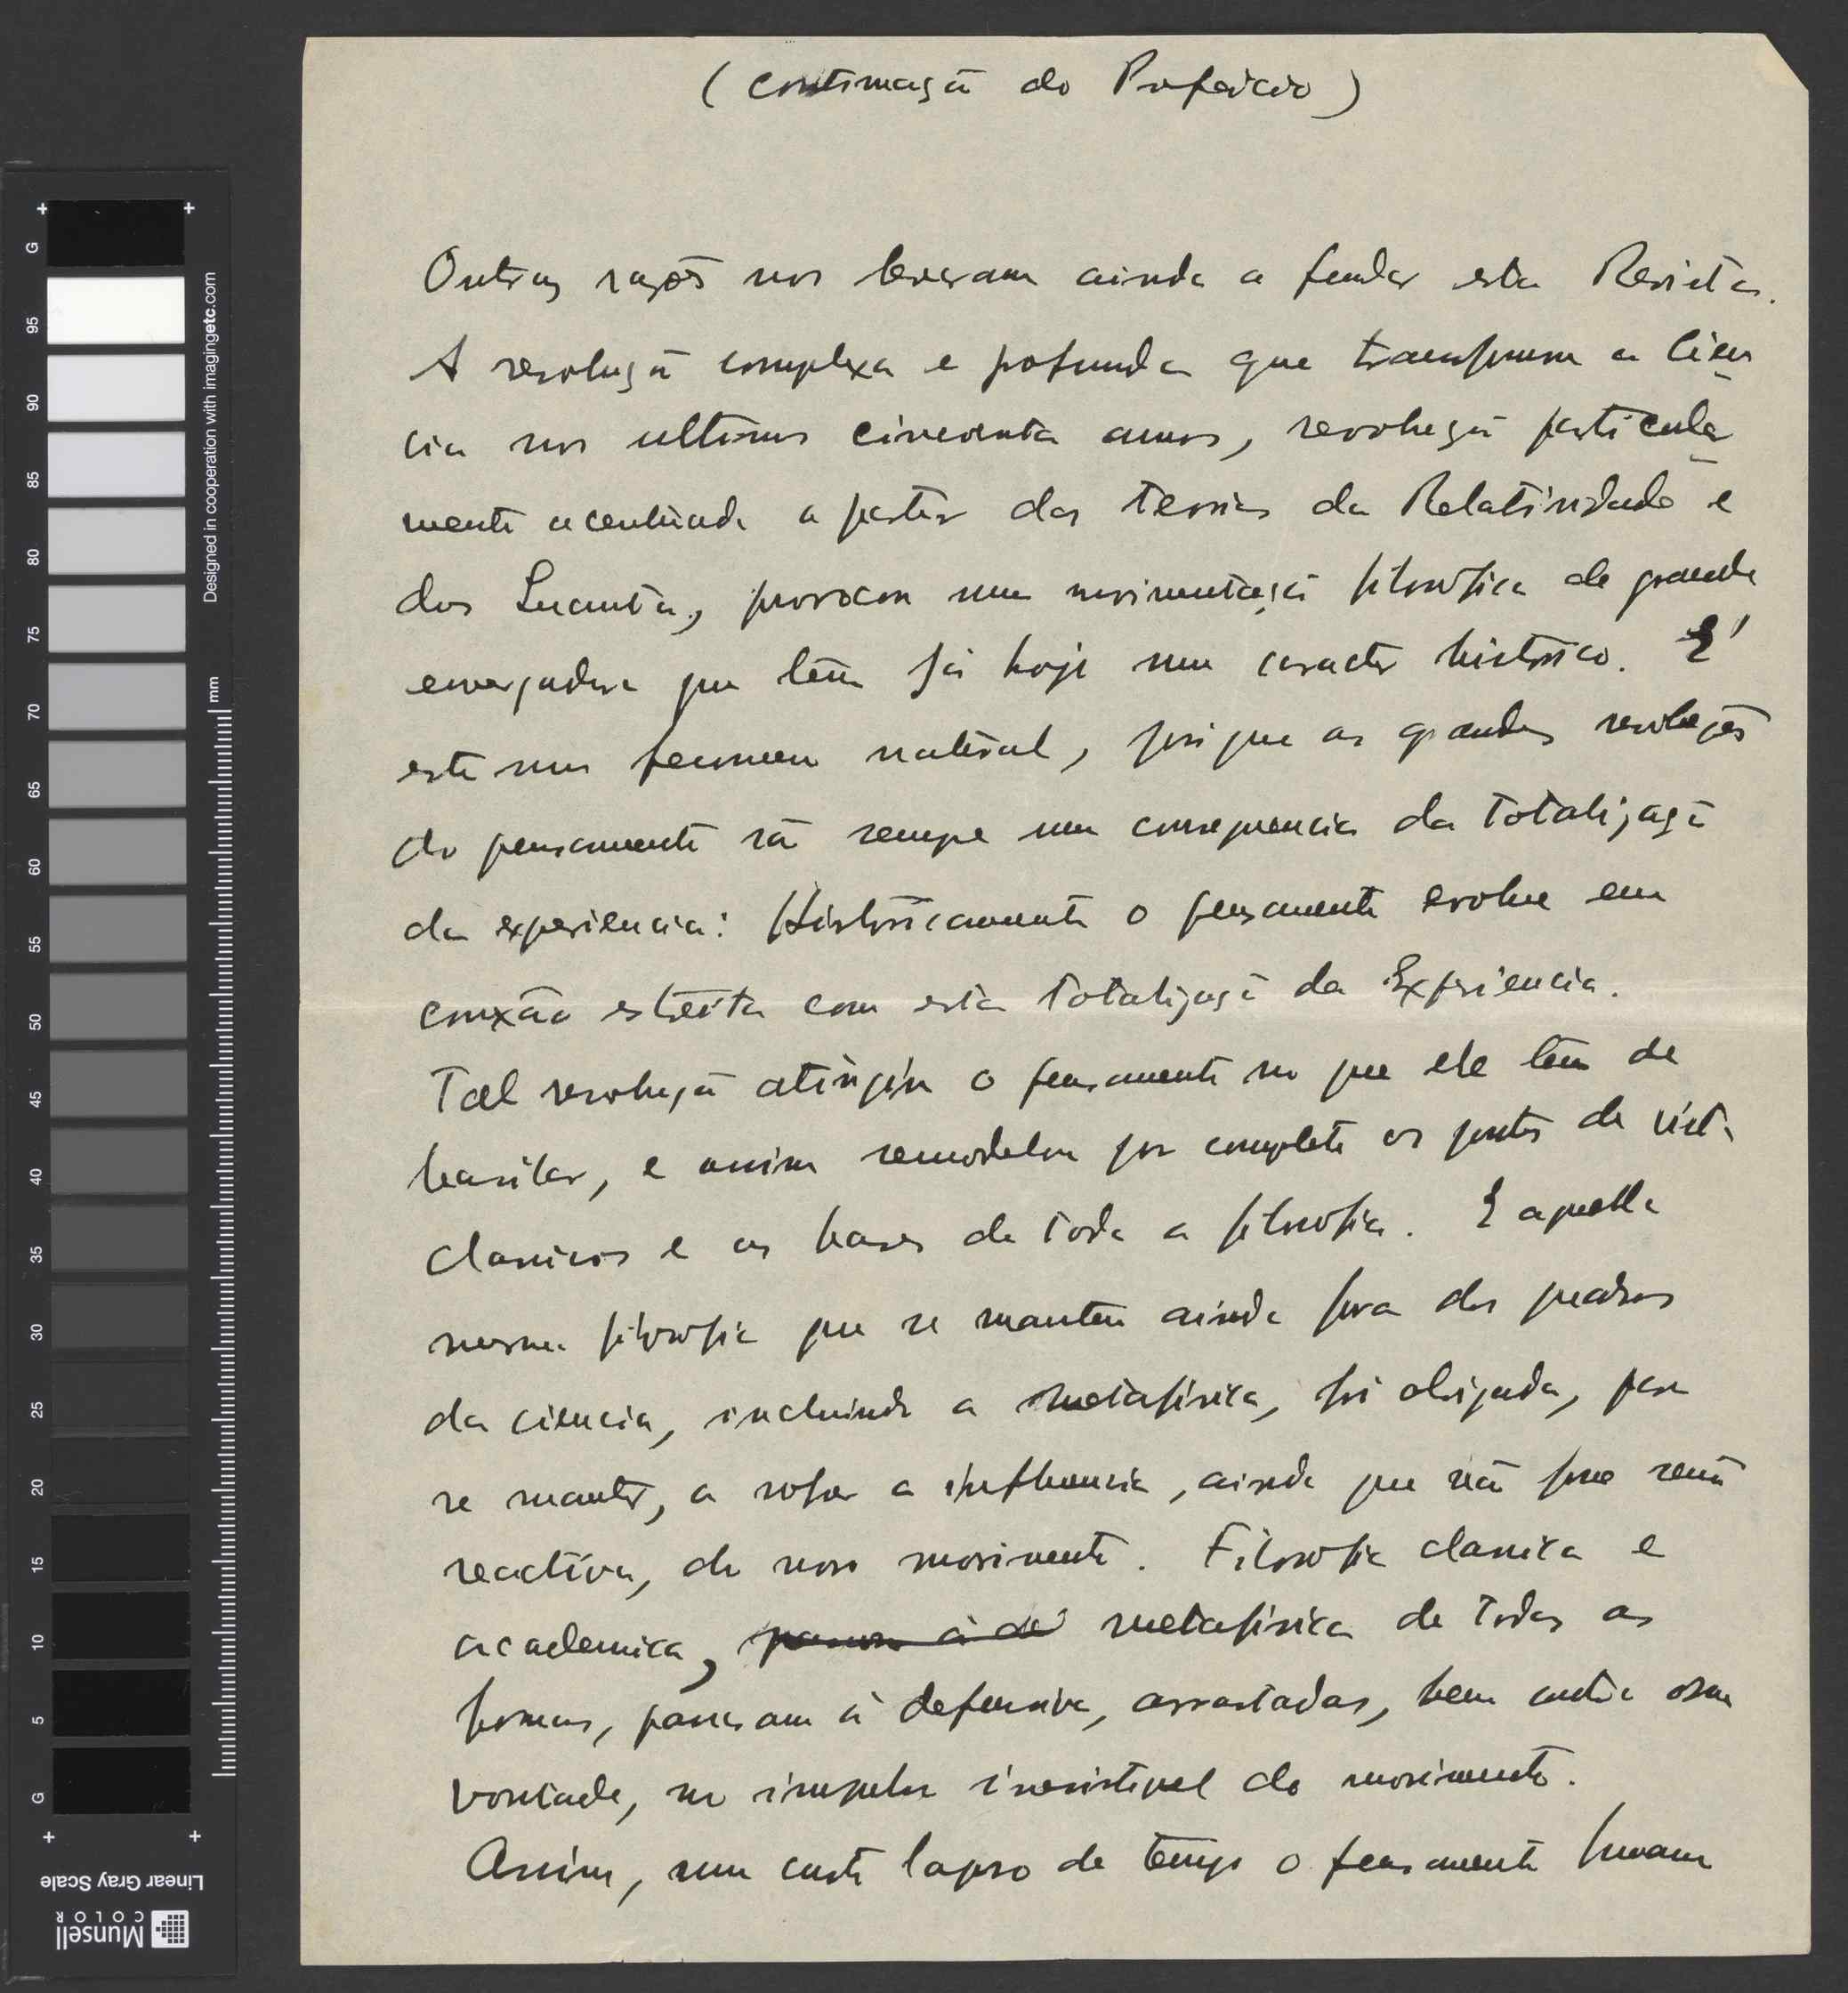 (continuação do Prefacio)
Outras razões nos levaram ainda a fundar esta Revista.
A revolução complexa e profunda que transformou a Ciên
cia nos ultimos cincoenta anos, revolução particular
mente acentuada a partir das teorias da Relatividade e
dos Quanta, provocou uma movimentação filosófica de grande
envergadura que têm já hoje um caracter histórico. E'
este um fenomeno natural, porque as grandes revoluções
do pensamento são sempre uma consequencia da totalização
da experiencia: Históricamente o pensamento evolue em
conexão estreita com esta totalização da Experiencia.
Tal revolução atingiu o pensamento no que ele têm de
basilar, e assim remodelou por completo os pontos de vista
classicos e as bases de toda a filosofia. E aquella
mesma filosofia que se mantem ainda fora dos quadros
da ciencia, incluindo a metafísica, foi obrigada, para
se manter, a sofrer a influencia, ainda que não fosse senão
reactiva, do novo movimento. Filosofia classica e
academica, metafísica de todas as
formas, passaram à defensiva, arrastadas, bem contra sua
vontade, no impulso irresistivel do movimento.
Assim, num curto lapso de tempo o pensamento humano